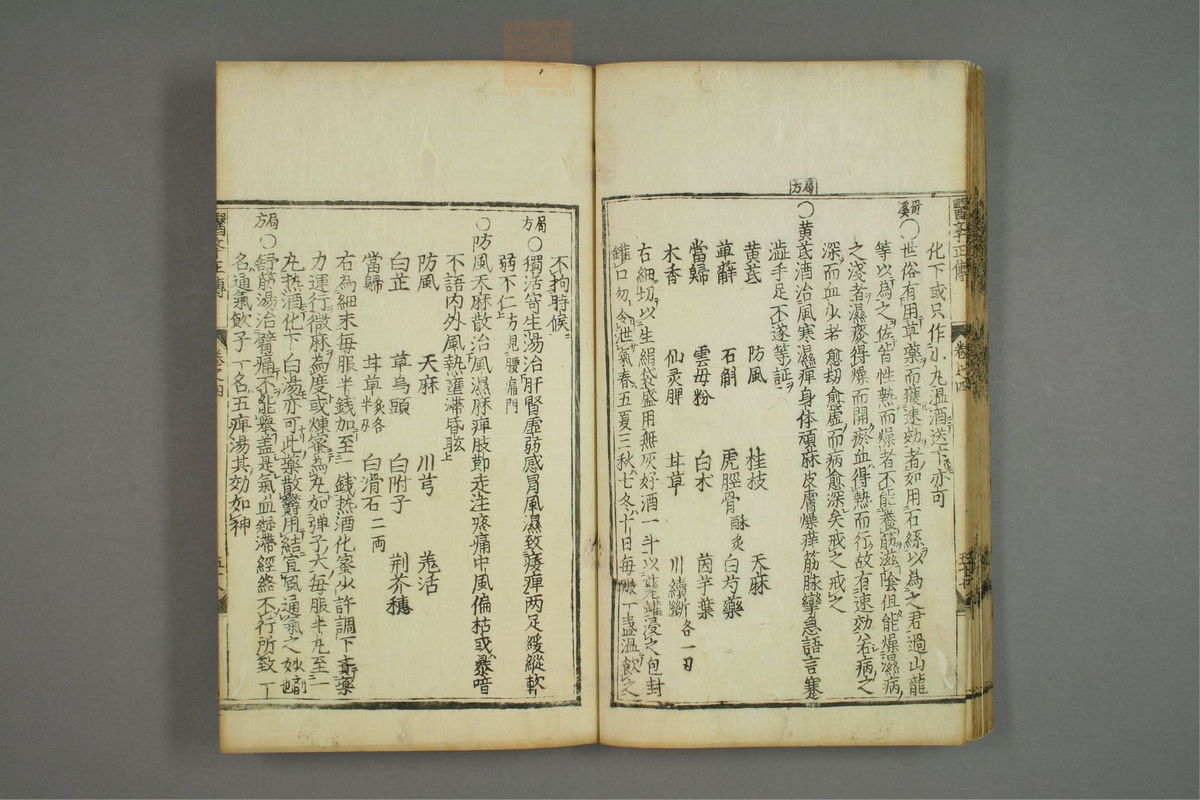 局方
化下或只作小丸温酒送下亦可
丹溪〇世俗有用草藥而獲速効者如用石絲以為之君過山龍
等以為之佐皆性熱而燥者不能養筋滋陰但能燥濕病
之淺者濕痰得燥而開瘀血得熱而行故有速効若病之
深而血少者愈劫愈虚而病愈深矣戒之戒之
〇黄芪酒治風寒濕痺身体頑麻皮膚燥痒筋脉攣急語言蹇
澁手足不遂等証
黄芪 防風 桂枝 天麻
萆薢 石斛 虎脛骨酥炙 白芍藥
當歸 雲母粉 白朮 茵芋葉
木香 仙灵脾 甘草 川續斷各一刃
右細切以生絹袋盛用無灰好酒一斗以甆罐浸之包封
鑵口勿令泄氣春五夏三秋七冬十日每服一盞温飲之
醫學正傳 卷之四
不拘時候
局方〇獨活寄生湯治肝腎虚弱感冒風濕致痿痺两足緩縱軟
弱不仁方見腰痛門
〇防風天麻散治風濕麻痺肢節走注疼痛中風偏枯或暴喑
不語内外風熱壅滞昏眩
防風 天麻 川芎 羗活
白芷 草烏頭 白附子 荊芥穗
當歸 甘草炙各半刃 白滑石二両
右為細末每服半銭加至一銭热酒化蜜少許調下覺藥
力運行微麻為度或煉蜜為丸如弹子大每服半丸至一
丸热酒化下白湯亦可此藥散欝開結宣風通氣之妙
局方〇舒筋湯治臂痛不能舉盖是氣血凝滞經絡不行所致一
名通氣飲子一名五痺湯其効如神
醫學正傳 卷之四